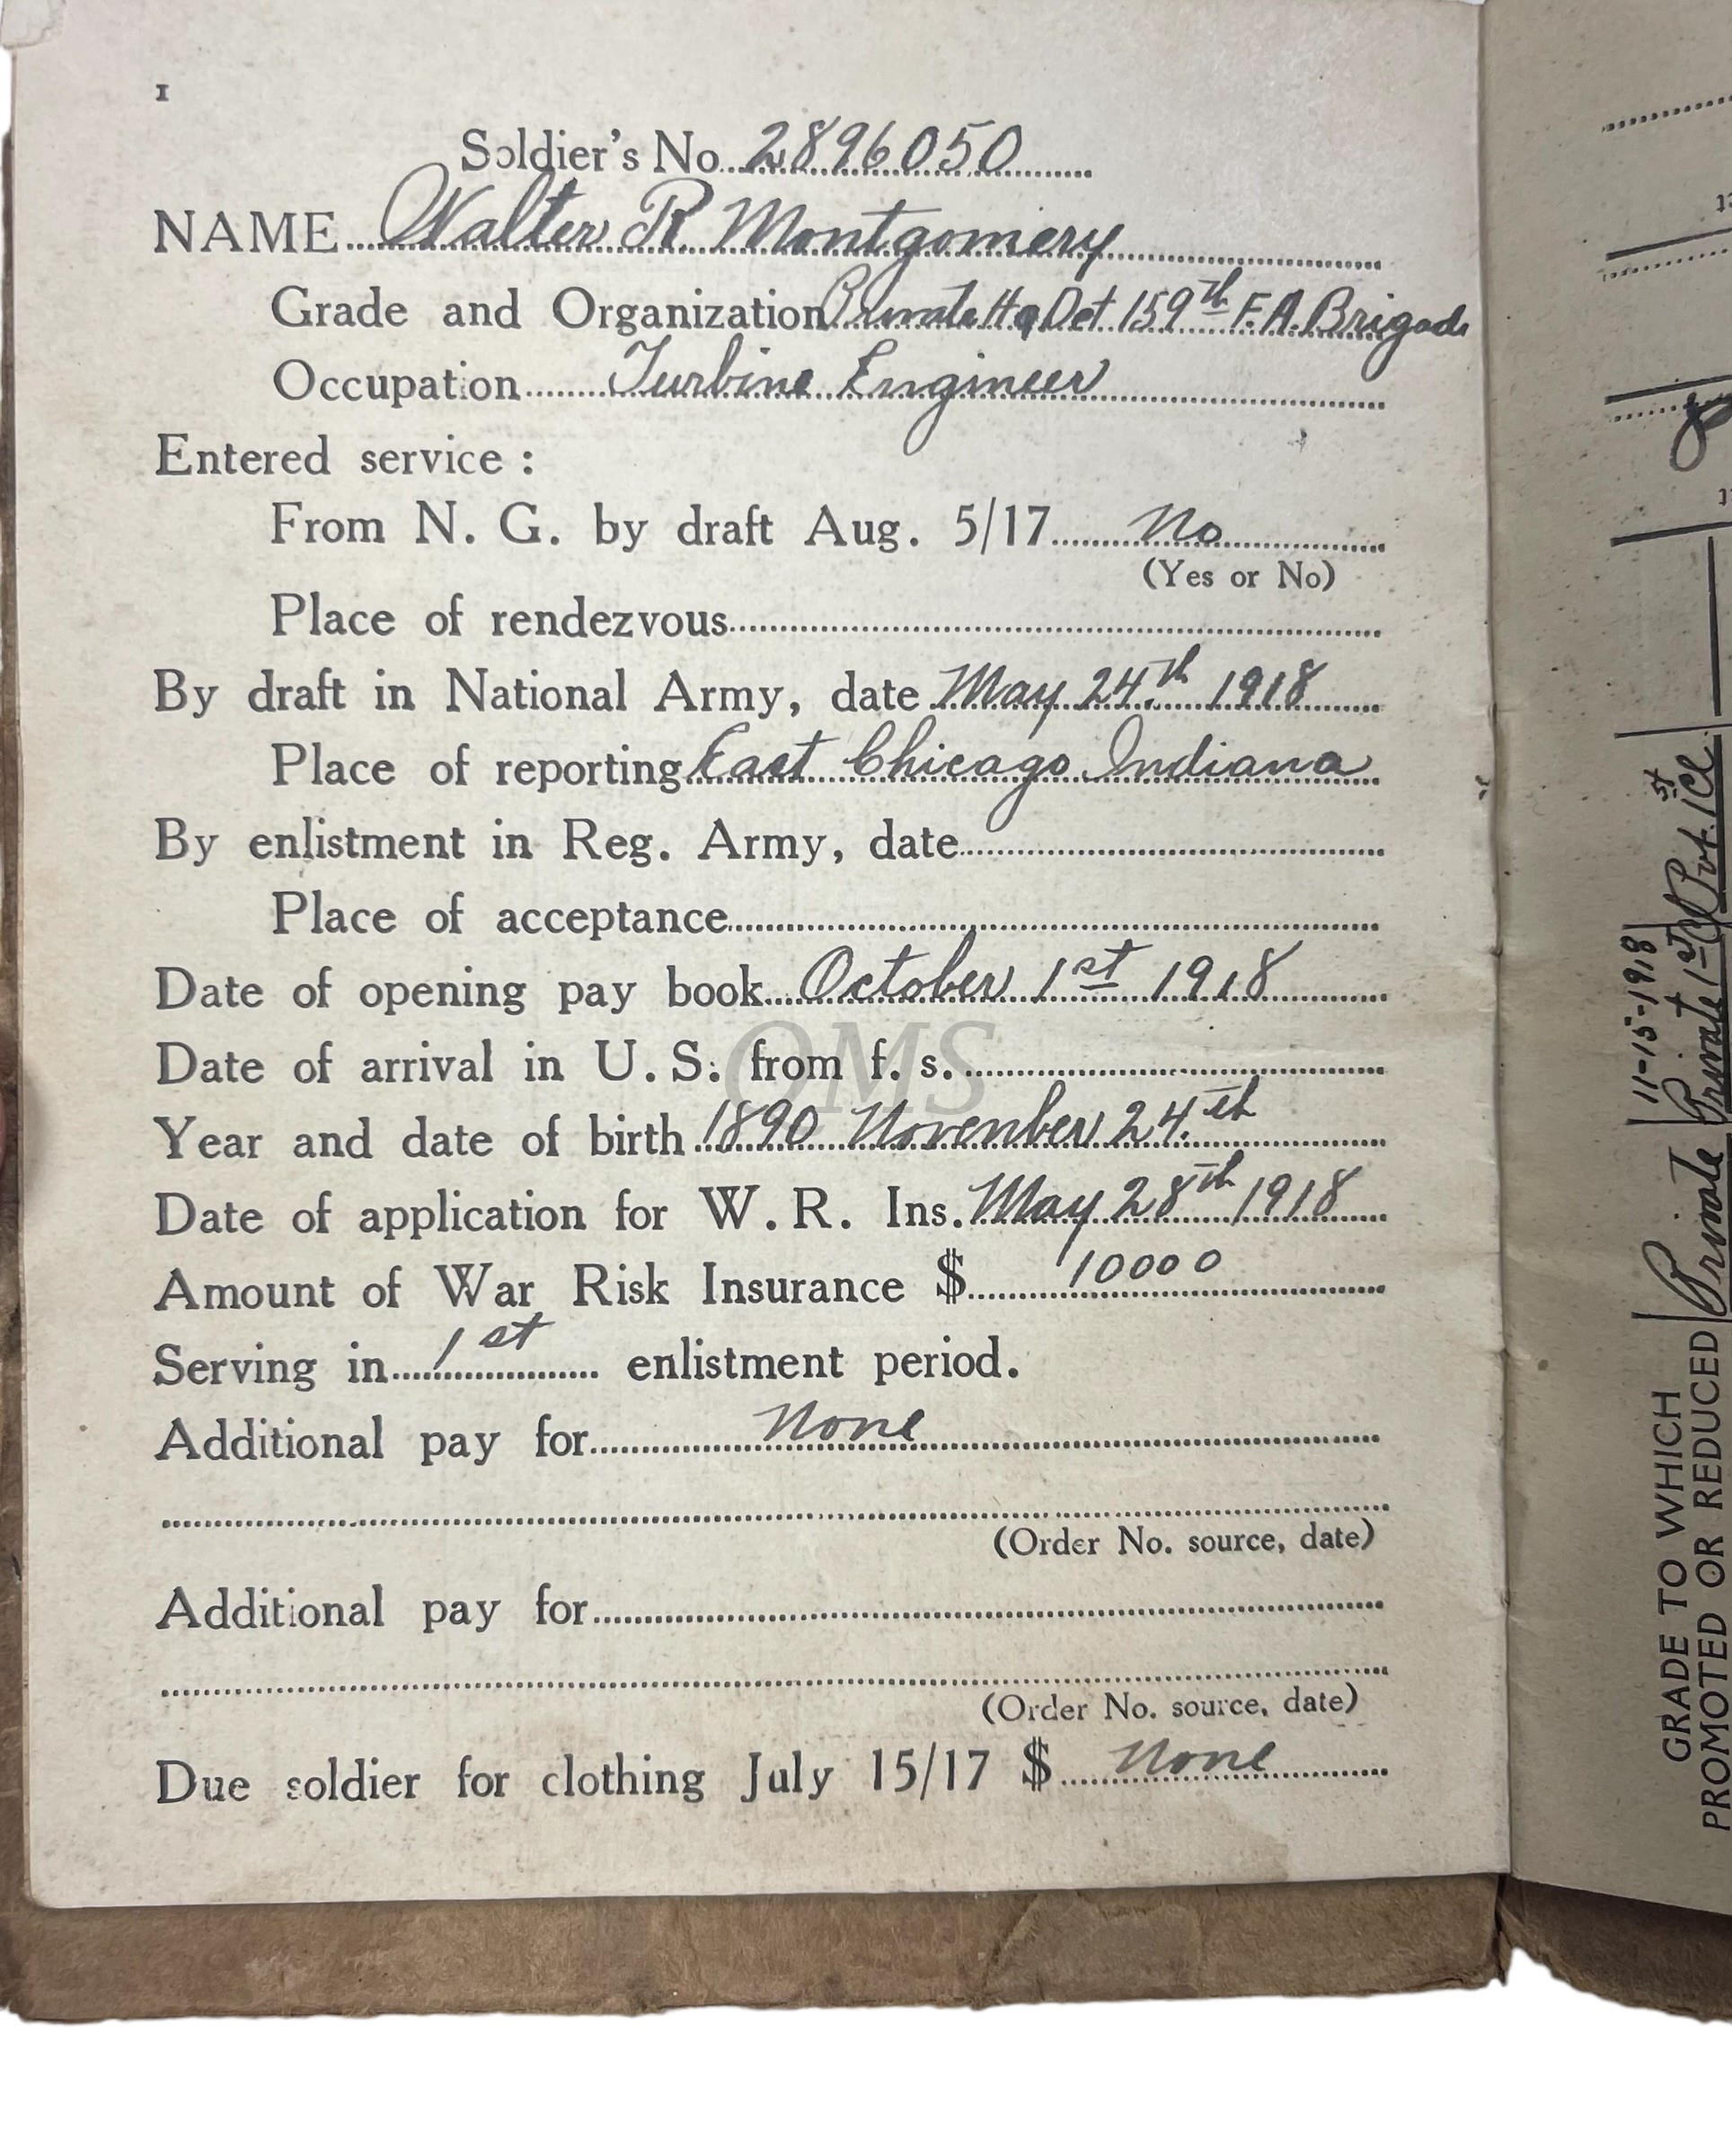 1
Soldier's No. 2896050
NAME Walter R Montgomery
Grade and Organization Private Hq Det 159th F.A. Brigade
Occupation Turbine Engineer
Entered service :
From N. G. by draft Aug. 5/17 No
(Yes or No)
Place of rendezvous
By draft in National Army, date May 24th 1918
Place of reporting East Chicago Indiana
By enlistment in Reg. Army, date
Place of acceptance
Date of opening pay book October 1st 1918
Date of arrival in U. S. from f. s.
OMS
Year and date of birth 1890 November 24th
Date of application for W. R. Ins. May 28th 1918
Amount of War Risk Insurance $ 10000
Serving in 1st enlistment period.
Additional pay for None
(Order No. source, date)
Additional pay for
(Order No. source, date)
Due soldier for clothing July 15/17 $ None
GRADE TO WHICH
PROMOTED OR REDUCED
Private
11-15-1918
Private 1st Cl
Pvt. 1st Cl.